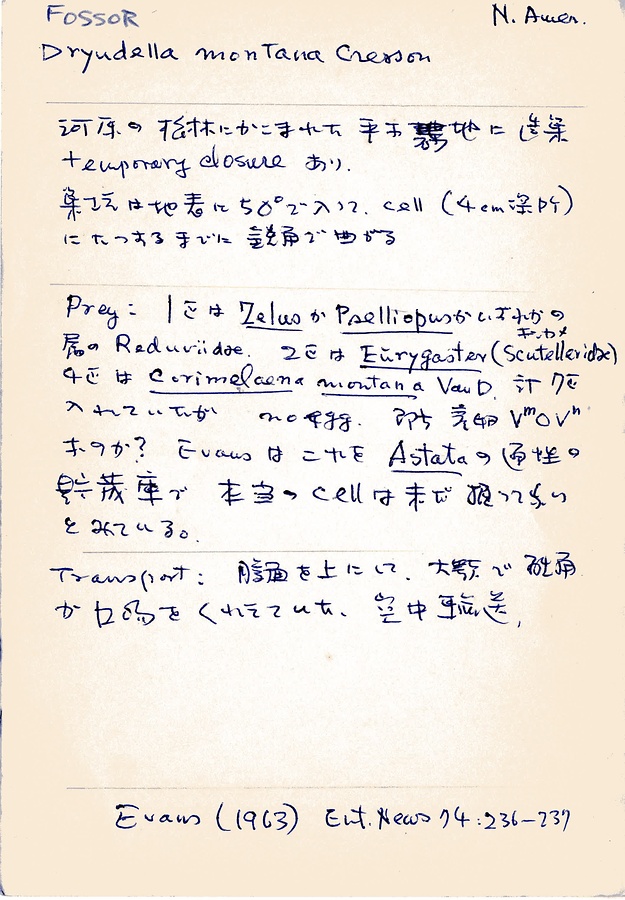 FOSSOR
N. Amer.
Dryudella montana Cresson
河原の 松林にかこまれた 平な 裸地 に 造巣
temporary closure あり.
巣坑は地表に50°で入って. cell (4cm深所)
にたっするまでに 鋭角で曲がる
Prey: 1匹は Zelus か Pselliopus かいずれかの
属の Reduviidae. 2匹は Eurygaster (Scutelleridae)
キンカメ
4匹は Corimelaena montana Van D. 計7匹
入れていたが no 卵. 即ち 産卵
なのか? Evans は これを Astata の 通性の
貯蔵庫で 本当の cell は未だ 掘ってない
とみている。
Transport: 腹面を上にして. 大顎で 触角
か 口吻をくわえていた、空中輸送,
Evans (1963) Ent. News 74:236-237